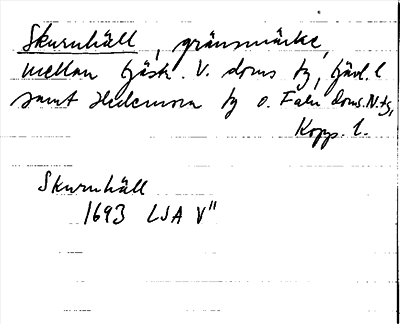 Skurnhäll, gränsmärke,
mellan Gästr. V. doms tg, Gävl. l
samt Hedemora tg o. Falu doms. N. tg,
Kopp. l.
Skurnhäll
1693 LSA V"